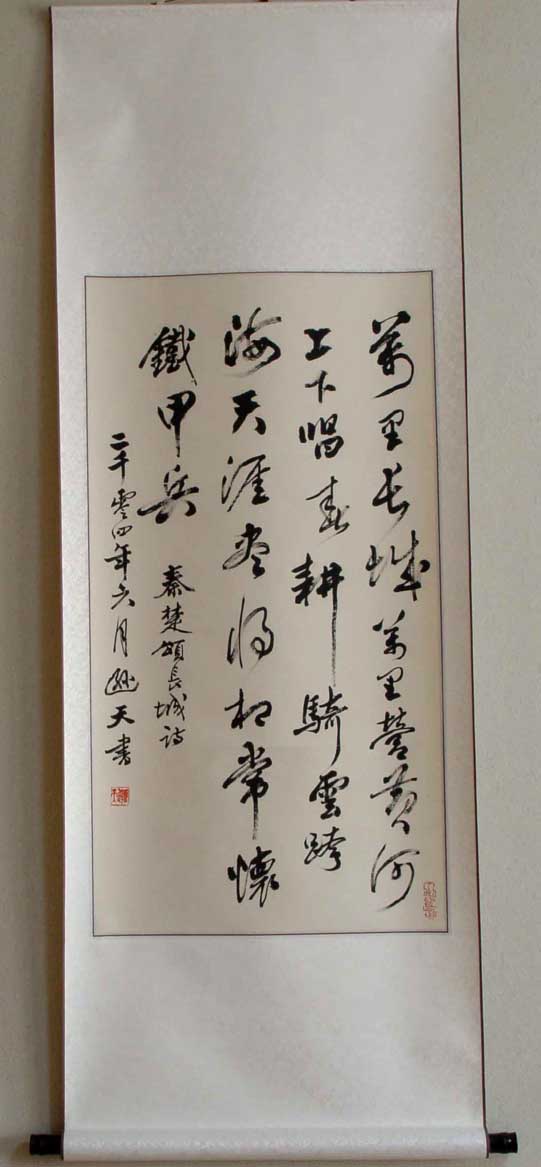 萬里長城萬里營黃河
上下唱春耕騎雲跨
海天涯盡將相常懷
鐵甲兵
秦楚頌長城詩
二千零四年六月遜天書